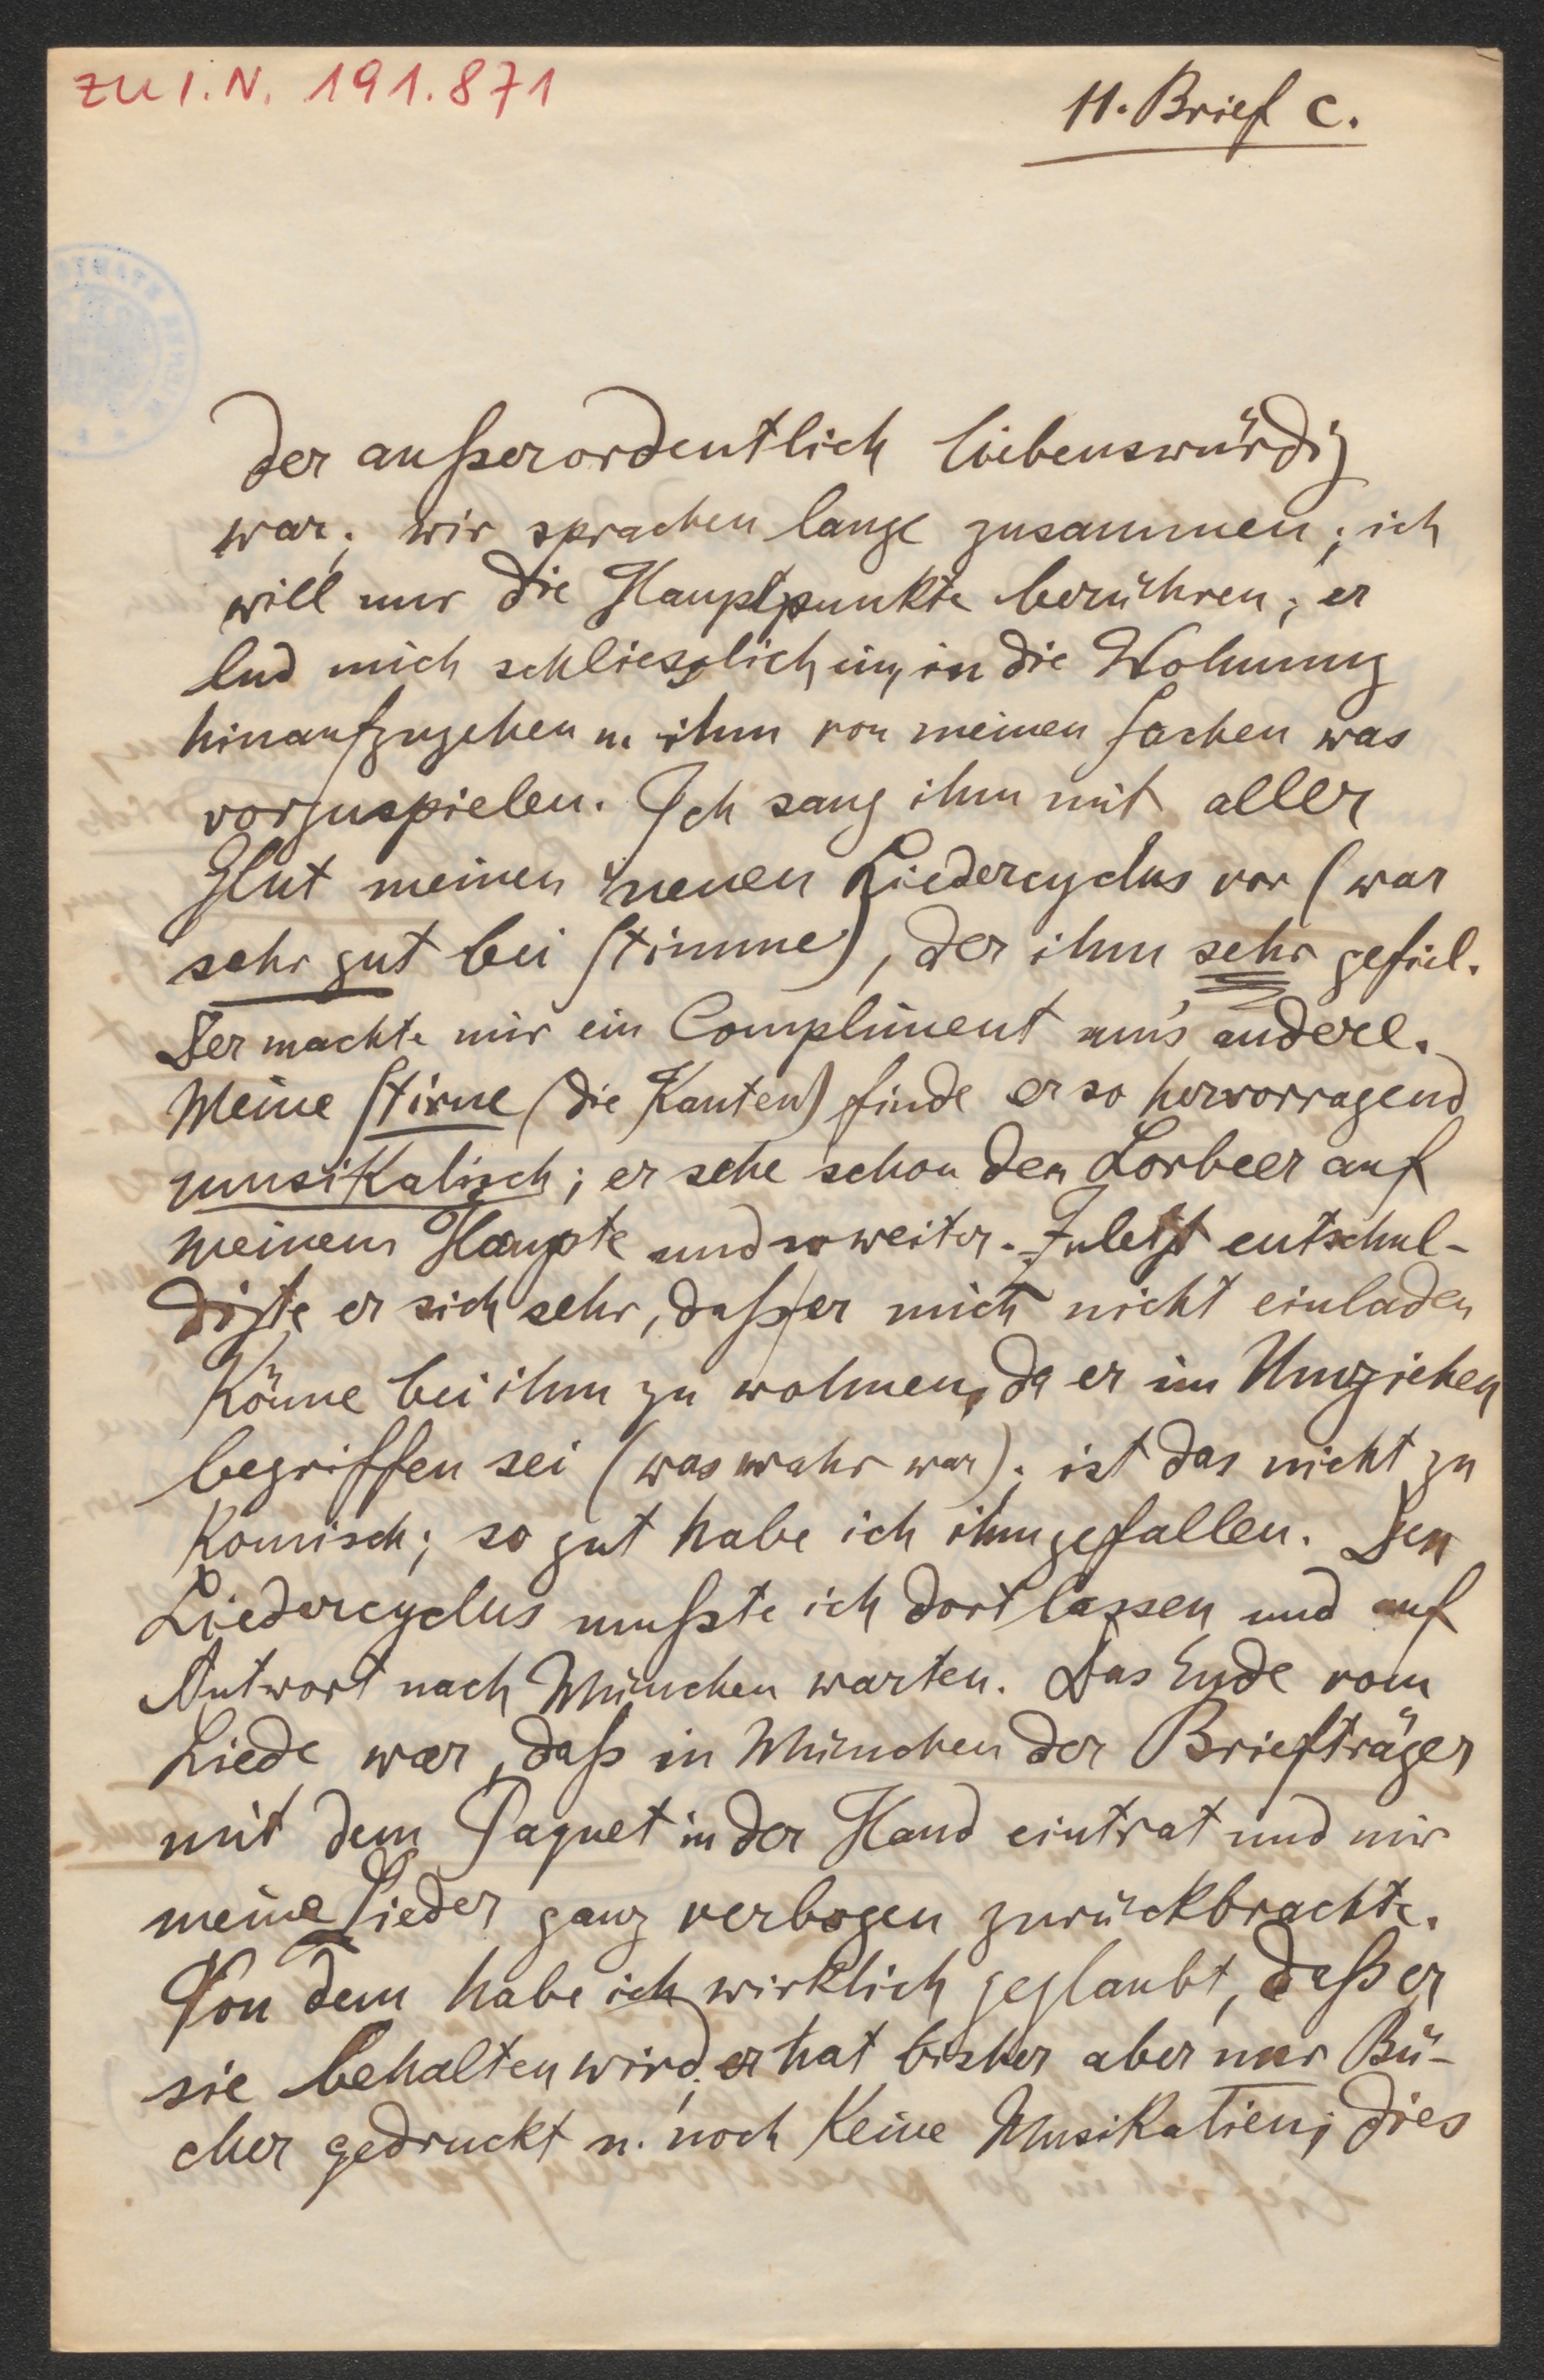 ZU I.N. 191.871
11. Brief C.
der außerordentlich liebenswürdig
war; wir sprachen lange zusammen; ich
will nur die Hauptpunkte berühren; er
lud mich schliesslich ein, in die Wohnung
hinaufzugehen u. ihm von meinen Sachen was
vorzuspielen. Ich sang ihm mit aller
Glut meinen neuen Liedercyclus vor (war
sehr gut bei Stimme), der ihm sehr gefiel.
Der machte mir ein Compliment um's andere.
Meine Stirne (die Kanten) finde er so hervorragend
musikalisch; er sehe schon den Lorbeer auf
meinem Haupte und so weiter. Zuletzt entschul-
digte er sich sehr, daß er mich nicht einladen
könne bei ihm zu wohnen, da er im Umziehen
begriffen sei (was wahr war); ist das nicht zu
komisch; so gut habe ich ihm gefallen. Den
Liedercyclus mußte ich dort lassen und auf
Antwort nach München warten. Das Ende vom
Liede war, daß in München der Briefträger
mit dem Paquet in der Hand eintrat und mir
meine Lieder ganz verbogen zurückbrachte.
Von dem habe ich wirklich geglaubt, daß er
sie behalten wird; er hat bisher aber nur Bü-
cher gedruckt u. noch keine Musikalien; dies